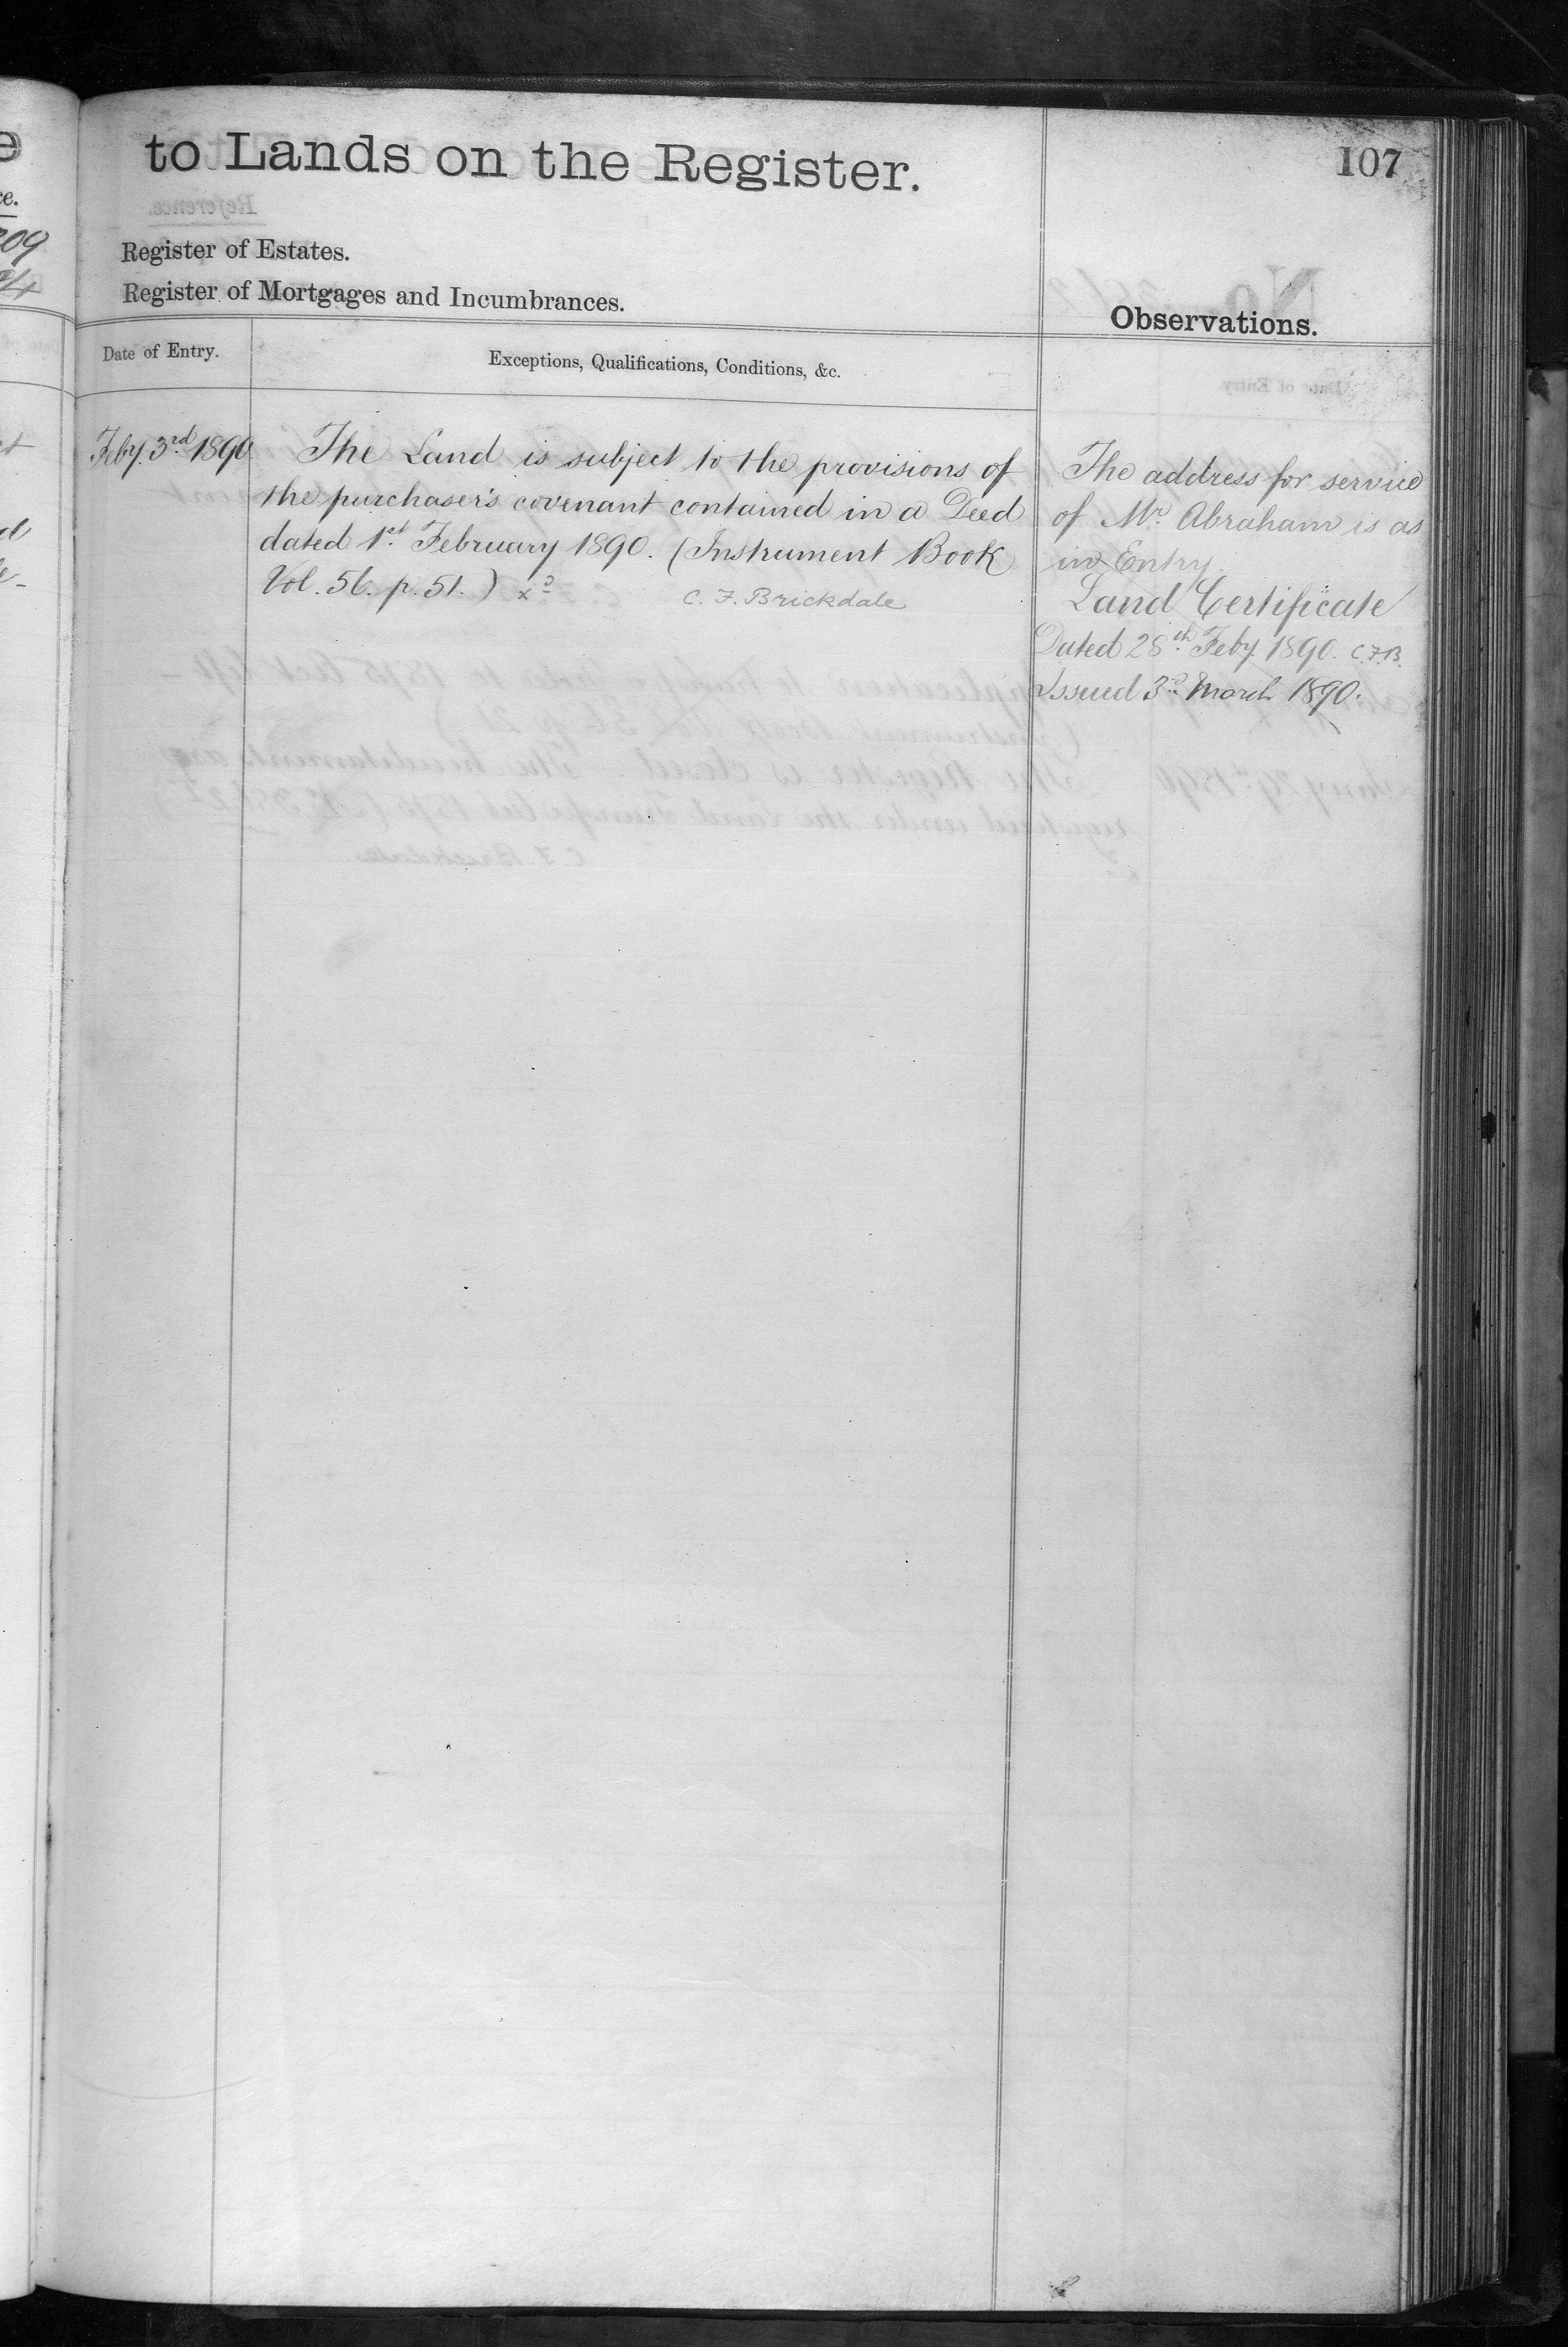 to Lands on the Register.
107
Register of Estates.
Register of Mortgages and Incumbrances.
Observations.
Date of Entry.
Exceptions, Qualifications, Conditions, &c.
Feby. 3rd 1890
The Land is subject to the provisions of
the purchaser's covenant contained in a Deed
dated 1st February 1890. (Instrument Book
Vol. 56. p. 51.)
C. F. Brickdale
The address for service
of Mr. Abraham is as
in Entry.
Land Certificate
Dated 28th Feby. 1890. C.F.B.
Issued 3rd March 1890.